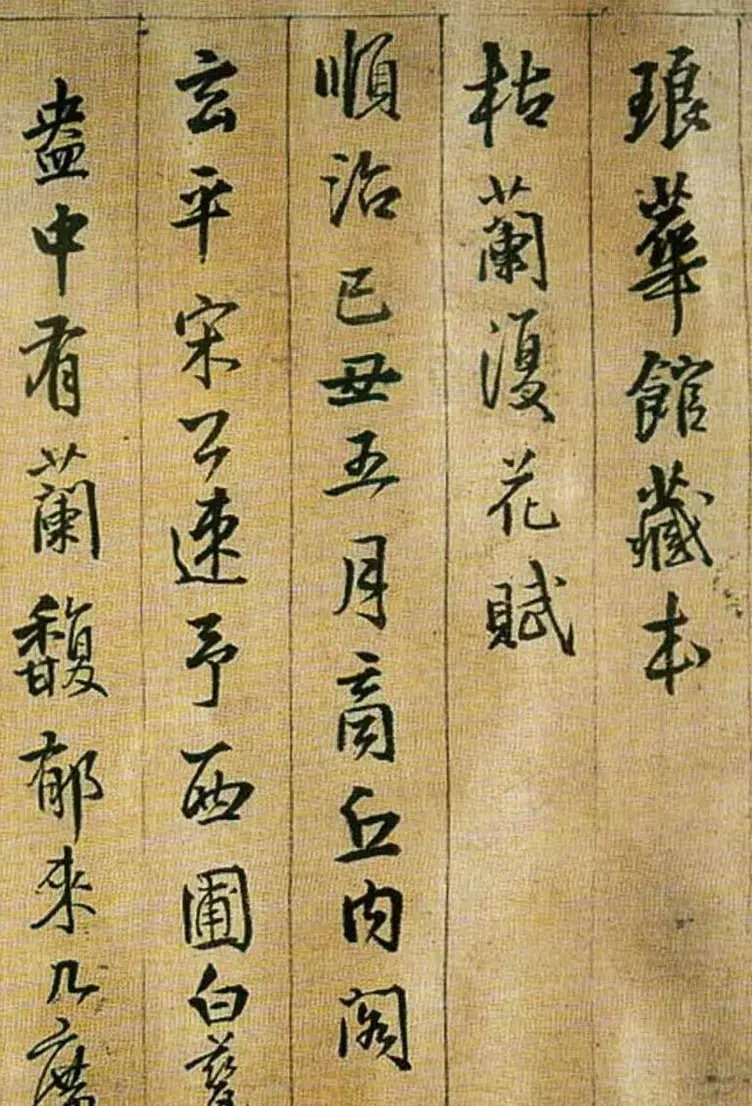 琅華館藏本
枯蘭復花賦
順治己丑五月商丘内閣
玄平宋公速予西圃白
盎中有蘭馥郁来几